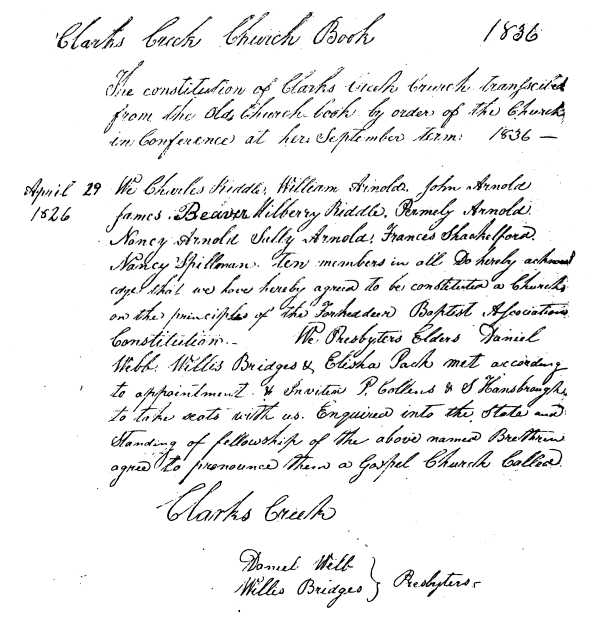 Clarks Creek Church Book 1836
The constitution of Clarks Creek Church transcribed
from the Old Church book by order of the Church
in Conference at her September term: 1836 —
April 29 We Charles Riddle, William Arnold, John Arnold
1826 James Beaver Wilberry Riddle, Permely Arnold
Nancy Arnold Sally Arnold, Frances Shackelford,
Nancy Spillman ten members in all Do hereby acknowl
edge that we have hereby agreed to be constituted a Church
on the principles of the Baptist Association
Constitution — We Presbyters Elders Daniel
Webb Willis Bridges & Elisha Pack met according
to appointment & Invited P. Collens & S Hansbrough
to take seats with us. Enquired into the State and
Standing of fellowship of the above named Brethren
agree to pronounce them a Gospel Church Called
Clarks Creek
Daniel Webb
Willis Bridges } Presbyters